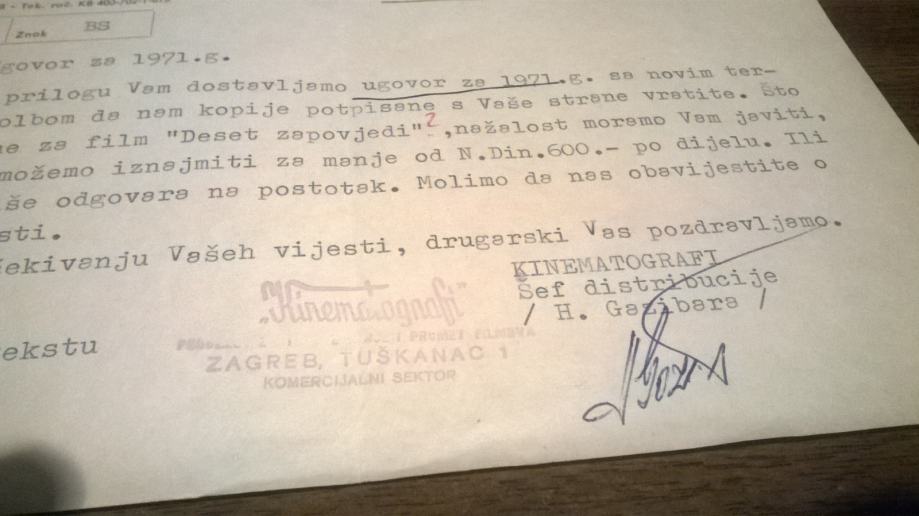 Tek. rač. KB
Znak BS
govor za 1971.g.
prilogu Vam dostavljamo ugovor za 1971.g. sa novim ter-
olbom da nam kopije potpisane s Vaše strane vratite. Što
e za film "Deset zapovjedi" ? ,nažalost moramo Vam javiti,
možemo iznajmiti za manje od N.Din.600.- po dijelu. Ili
še odgovara na postotak. Molimo da nas obavijestite o
sti.
ekivanju Vašeh vijesti, drugarski Vas pozdravljamo.
KINEMATOGRAFI
Šef distribucije
/ H. Gazibara /
ekstu
"Kinematografi"
PROMET FILMOVA
ZAGREB, TUŠKANAC 1
KOMERCIJALNI SEKTOR